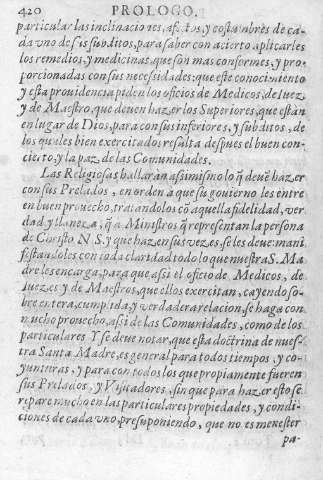 420 PROLOGO.
particular las inclinaciones, afectos, y costumbres de ca-
da vno de sus subditos, para saber con acierto aplicarles
los remedios, y medicinas que son mas conformes, y pro-
porcionadas con sus necesidades: que este conocimiento
y esta prouidencia piden los oficios de Medicos, de Iuez,
y de Maestro, que deuen hazer los Superiores, que están
en lugar de Dios, para con sus inferiores, y subditos, de
los quales bien exercitados resulta despues el buen con-
cierto, y la paz de las Comunidades.
Las Religiosas hallarán assimismo lo q̃ deuẽ hazer
con sus Prelados, en orden a que su gouierno les entre
en buen prouecho, tratandolos cõ aquella fidelidad, ver-
dad y llaneza, q̃ a Ministros q̃ representan la persona
de Christo N. S. y que hazen sus vezes, se les deue: mani
festandoles con toda claridad todo lo que nuestra S. Ma
dre les encarga, para que assi el oficio de Medicos, de
Iuezes, y de Maestros, que ellos exercitan, cayendo so-
bre entera, cumplida, y verdadera relacion, se haga con
mucho prouecho, assi de las Comunidades, como de los
particulares Y se deue notar, que esta doctrina de nues-
tra Santa Madre, es general para todos tiempos, y co-
yunturas, y para con todos los que propiamente fueren
sus Prelados, y Visitadores, sin que para hazer esto se
repare mucho en las particulares propiedades, y condi-
ciones de cada vno, presuponiendo, que no es menester
pa-